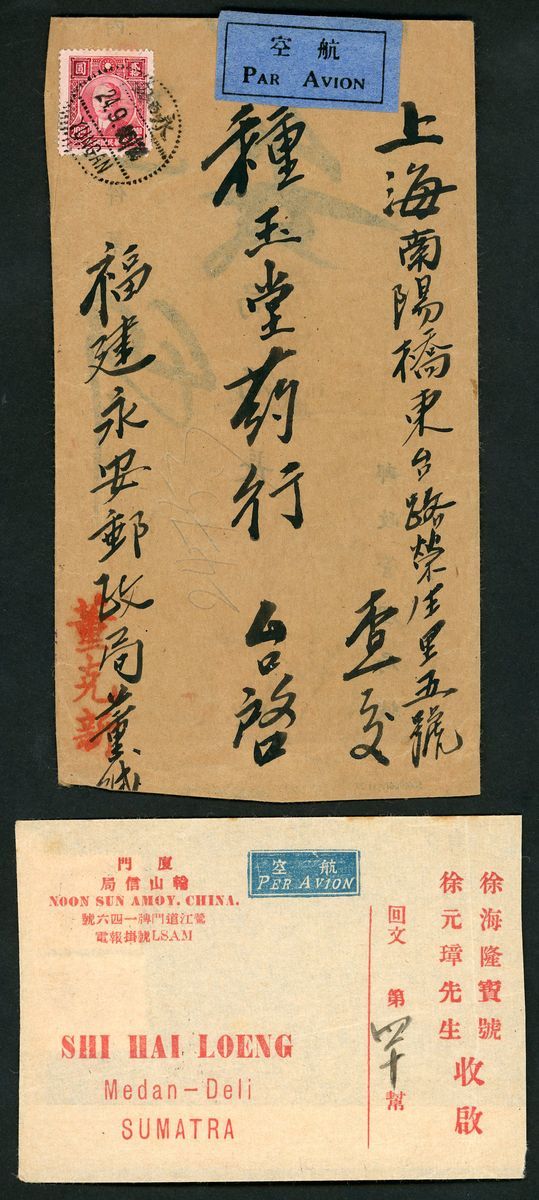 航空
PAR AVION
上海南陽橋東台路榮生里五號
查交
種玉堂药行 台啓
福建永安郵政局董
董克新
圓
24.9
YUNGAN
永
廈門
輪山信局
NOON SUN AMOY. CHINA.
鷺江道門牌一四六號
電報掛號LSAM
航空
PER AVION
徐海隆寶號
徐元璋先生 收啟
回文 第四十幫
SHI HAI LOENG
Medan-Deli
SUMATRA